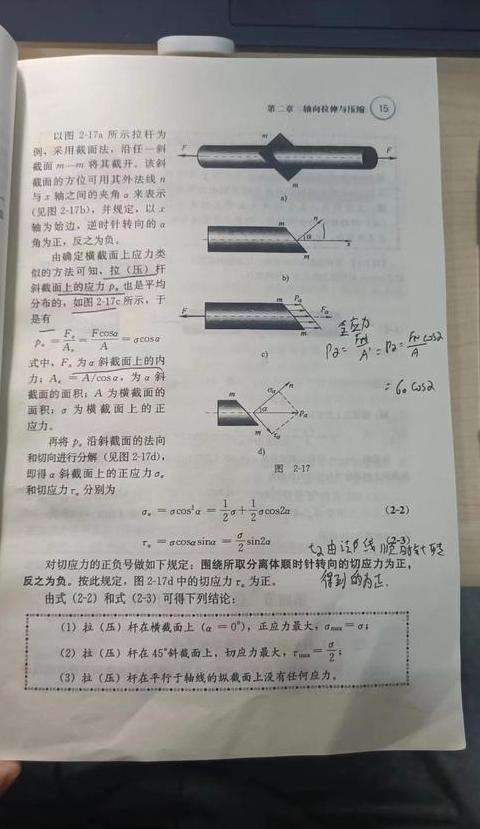 第二章 轴向拉伸与压缩 15
以图 2-17a 所示拉杆为
例，采用截面法，沿任一斜
截面 m—m 将其截开。该斜
截面的方位可用其外法线 n
与 x 轴之间的夹角 α 来表示
（见图 2-17b），并规定，以 x
轴为始边，逆时针转向的 α
角为正，反之为负。
由确定横截面上应力类
似的方法可知，拉（压）杆
斜截面上的应力 pα 也是平均
分布的，如图 2-17c 所示，于
是有
pα = Fα/Aα = Fcosα/A = σcosα
式中，Fα 为 α 斜截面上的内
力；Aα = A/cosα，为 α 斜
截面的面积；A 为横截面的
面积；σ 为横截面上的正
应力。
再将 pα 沿斜截面的法向
和切向进行分解（见图 2-17d），
即得 α 斜截面上的正应力 σα
和切应力 τα 分别为
m
F
F
m
a)
m
n
α
x
m
b)
F
m
pα
Fα
m
c)
全应力
σα
n
m
α
pα
m
τα
d)
图 2-17
σα = σcos²α = 1/2 σ + 1/2 σcos2α (2-2)
τα = σcosαsinα = σ/2 sin2α (2-3)
得到的为正.
对切应力的正负号做如下规定：围绕所取分离体顺时针转向的切应力为正，
反之为负。按此规定，图 2-17d 中的切应力 τα 为正。
由式（2-2）和式（2-3）可得下列结论：
（1）拉（压）杆在横截面上（α = 0°），正应力最大，σmax = σ；
（2）拉（压）杆在 45°斜截面上，切应力最大，τmax = σ/2；
（3）拉（压）杆在平行于轴线的纵截面上没有任何应力。